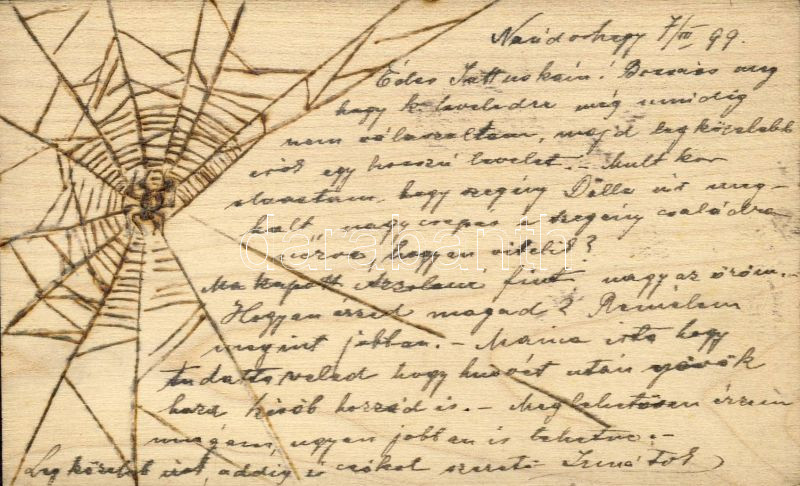 Nándorhegy 7/III 99.
Édes Juttuskám! Bocsáss meg
hogy k. leveledre még mindig
nem válaszoltam, majd legközelebb
írok egy hosszú levelet. - Mult kor
olvastam, hogy szegény Dolla is meg-
halt, nagy csapás szegény családra
nézve, hogyan viselik?
Ma kapott fiút, nagy az öröm. -
Hogyan érzed magad? Remélem
megint jobban. - Mama írta hogy
tudatta veled hogy husvét után jövök
haza később hozzád is. - Meglehetősen érzem
magam, ugyan jobban is lehetne. -
Legközelebb írok, addig is csókol szerető Irmátok
darabanth